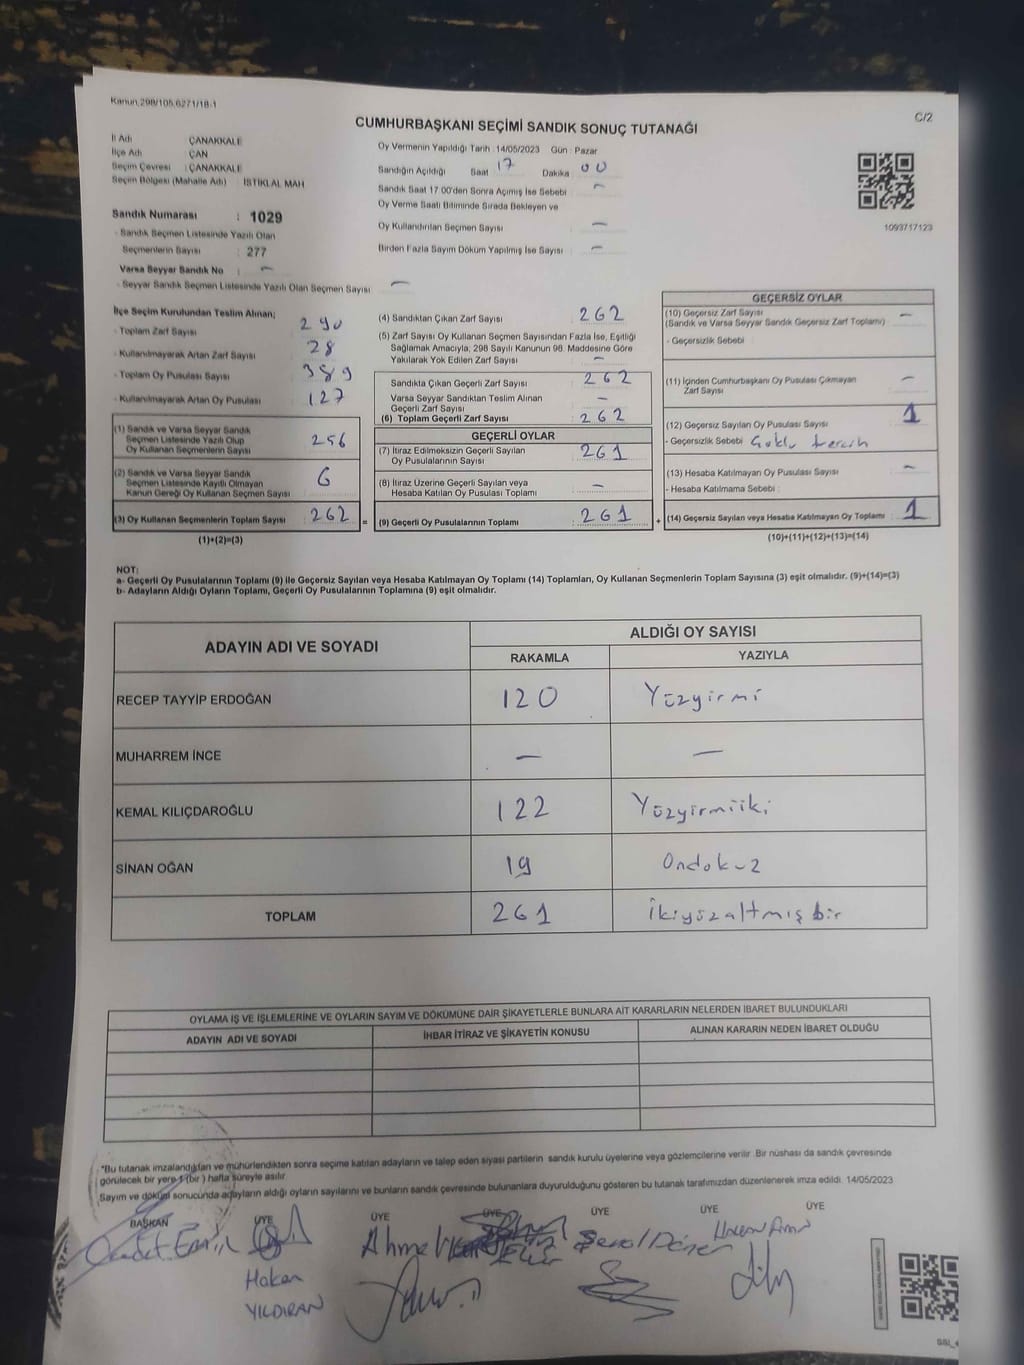 Kanun,298/105,6271/18-1
C/2
CUMHURBAŞKANI SEÇİMİ SANDIK SONUÇ TUTANAĞI
İl Adı ÇANAKKALE
İlçe Adı ÇAN
Seçim Çevresi : ÇANAKKALE
Seçim Bölgesi (Mahalle Adı) : İSTİKLAL MAH
Sandık Numarası : 1029
- Sandık Seçmen Listesinde Yazılı Olan
Seçmenlerin Sayısı : 277
Varsa Seyyar Sandık No : –
- Seyyar Sandık Seçmen Listesinde Yazılı Olan Seçmen Sayısı –
Oy Vermenin Yapıldığı Tarih : 14/05/2023 Gün : Pazar
Sandığın Açıldığı Saat 17 Dakika 00
Sandık Saat 17 00'den Sonra Açımış İse Sebebi –
Oy Verme Saati Bitiminde Sırada Bekleyen ve
Oy Kullandırılan Seçmen Sayısı –
Birden Fazla Sayım Döküm Yapılmış İse Sayısı –
1093717123
İlçe Seçim Kurulundan Teslim Alınan;
- Toplam Zarf Sayısı 290
- Kullanılmayarak Artan Zarf Sayısı 28
- Toplam Oy Pusulası Sayısı 389
- Kullanılmayarak Artan Oy Pusulası 127
(1) Sandık ve Varsa Seyyar Sandık
Seçmen Listesinde Yazılı Olup
Oy Kullanan Seçmenlerin Sayısı 256
(2) Sandık ve Varsa Seyyar Sandık
Seçmen Listesinde Kayıtlı Olmayan
Kanun Gereği Oy Kullanan Seçmen Sayısı 6
(3) Oy Kullanan Seçmenlerin Toplam Sayısı 262 =
(1)+(2)=(3)
(4) Sandıktan Çıkan Zarf Sayısı : 262
(5) Zarf Sayısı Oy Kullanan Seçmen Sayısından Fazla İse, Eşitliği
Sağlamak Amacıyla, 298 Sayılı Kanunun 98. Maddesine Göre
Yakılarak Yok Edilen Zarf Sayısı –
Sandıkta Çıkan Geçerli Zarf Sayısı : 262
Varsa Seyyar Sandıktan Teslim Alınan
Geçerli Zarf Sayısı –
(6) Toplam Geçerli Zarf Sayısı : 262
GEÇERLİ OYLAR
(7) İtiraz Edilmeksizin Geçerli Sayılan
Oy Pusulalarının Sayısı : 261
(8) İtiraz Üzerine Geçerli Sayılan veya
Hesaba Katılan Oy Pusulası Toplamı : –
(9) Geçerli Oy Pusulalarının Toplamı : 261 +
GEÇERSİZ OYLAR
(10) Geçersiz Zarf Sayısı
(Sandık ve Varsa Seyyar Sandık Geçersiz Zarf Toplamı) –
- Geçersizlik Sebebi :
(11) İçinden Cumhurbaşkanı Oy Pusulası Çıkmayan
Zarf Sayısı –
(12) Geçersiz Sayılan Oy Pusulası Sayısı 1
- Geçersizlik Sebebi
(13) Hesaba Katılmayan Oy Pusulası Sayısı –
- Hesaba Katılmama Sebebi :
(14) Geçersiz Sayılan veya Hesaba Katılmayan Oy Toplamı : 1
(10)+(11)+(12)+(13)=(14)
NOT:
a- Geçerli Oy Pusulalarının Toplamı (9) ile Geçersiz Sayılan veya Hesaba Katılmayan Oy Toplamı (14) Toplamları, Oy Kullanan Seçmenlerin Toplam Sayısına (3) eşit olmalıdır. (9)+(14)=(3)
b- Adayların Aldığı Oyların Toplamı, Geçerli Oy Pusulalarının Toplamına (9) eşit olmalıdır.
ADAYIN ADI VE SOYADI ALDIĞI OY SAYISI
RAKAMLA YAZIYLA
RECEP TAYYİP ERDOĞAN 120 Yüzyirmi
MUHARREM İNCE – –
KEMAL KILIÇDAROĞLU 122 Yüzyirmiiki
SİNAN OĞAN 19 Ondokuz
TOPLAM 261 İkiyüzaltmışbir
OYLAMA İŞ VE İŞLEMLERİNE VE OYLARIN SAYIM VE DÖKÜMÜNE DAİR ŞİKAYETLERLE BUNLARA AİT KARARLARIN NELERDEN İBARET BULUNDUKLARI
ADAYIN ADI VE SOYADI İHBAR İTİRAZ VE ŞİKAYETİN KONUSU ALINAN KARARIN NEDEN İBARET OLDUĞU
"Bu tutanak imzalandıktan ve mühürlendikten sonra seçime katılan adayların ve talep eden siyasi partilerin sandık kurulu üyelerine veya gözlemcilerine verilir. Bir nüshası da sandık çevresinde
görülecek bir yere 1 (bir) hafta süreyle asılır.
Sayım ve döküm sonucunda adayların aldığı oyların sayılarını ve bunların sandık çevresinde bulunanlara duyurulduğunu gösteren bu tutanak tarafımızdan düzenlenerek imza edildi. 14/05/2023
BAŞKAN ÜYE ÜYE ÜYE ÜYE ÜYE ÜYE
Ahmet Şenol Döner
Hakan
YILDIRAN